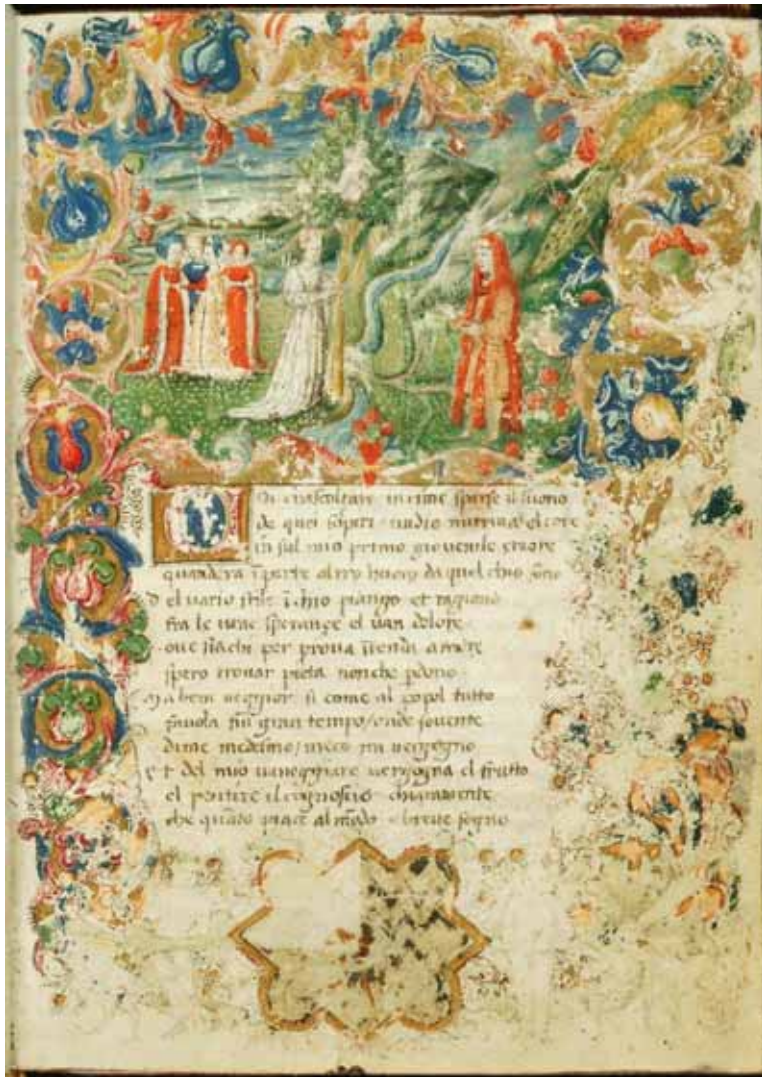 Oi ch ascoltate in rime sparse il suono
de quei sospiri ondio nutriua el core
in sul mio primo giouenile errore
quandera ī parte altro huom da quel chio sōno
d el uario stile ī chio piango et ragiono
fra le uane speranze el uan dolore
oue sia chi per proua ītenda amore
spero trouar pieta nonche pdono
M a ben ueggior si come al popol tutto
fauola fui gran tempo/onde souente
di me medesimo/meco mi uergogno
E t del mio uaneggiare uergogna el frutto
el pentire il cognoscer chiaramente
che quāto piace al mōdo e breue sogno